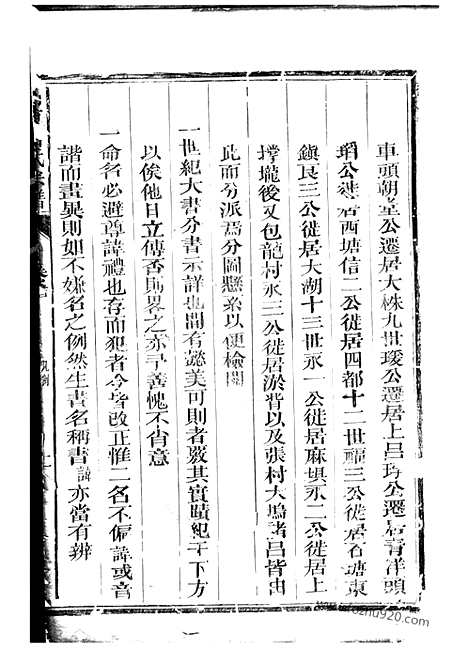 車頭朝堂公遷居大株九世琁公遷居上呂琈公遷居青洋頭
琄公徙居西塘信二公徙居四都十二世福三公徙居石塘東
鎮良三公徙居大湖十三世永一公徙居麻垻永二公徙居上
墿壠後又包龍村永三公徙居淤背以及張村大塢諸呂皆由
此而分派爲分圖懸系以便檢閱
一世紀大書分書示詳也間有懿美可則者敘其實蹟紀于下方
以俟他日立傳否則畧之亦予善愧不肖意
一命名必避尊諱禮也存而犯者今皆改正惟二名不偏諱或音
諧而畫異則如不嫌名之例然生書名稱書諱亦當有辨